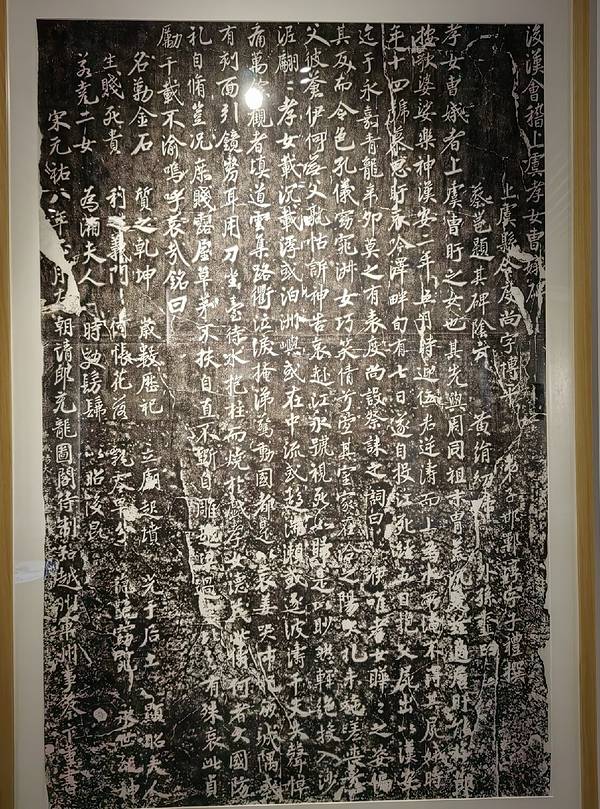 後漢會稽上虞孝女曹娥碑
上虞縣令度尚字博平 弟子邯鄲淳字子禮撰
蔡邕題其碑陰云 黃絹幼婦 外孫齏臼
孝女曹娥者上虞曹盱之女也其先與周同祖末胄荒流爰茲適居盱能撫節
按歌婆娑樂神漢安二年五月時迎伍君逆濤而上為水所淹不得其屍娥時
年十四號慕思盱哀吟澤畔旬有七日遂自投江死經五日抱父屍出以漢安
迄于永嘉青龍辛卯莫之有表度尚設祭誄之詞曰 伊惟孝女曄曄之姿偏
其反而令色孔儀窈窕淑女巧笑倩兮宜其室家在洽之陽大禮未施嗟喪
父彼蒼伊何無父孰怙訴神告哀赴江永號視死如歸是以眇然輕絕投入沙
泥翩翩孝女載沉載浮或泊洲嶼或在中流或趨湍瀨或逐波濤千夫失聲悼
痛萬餘觀者填道雲集路衢泣淚掩涕驚動國都是以哀姜哭市杞崩城隅或
有剋面引鏡剺耳用刀坐臺待水抱柱而燒於戲孝女德茂此儔何者大國防
禮自脩豈況庶賤露屋草茅不扶自直不斲自雕越梁過宋比之有殊哀此貞
勵千載不渝嗚呼哀哉銘曰
名勒金石 質之乾坤 歲數歷祀 立廟起墳 光于后土 顯昭夫人
生賤死貴 利之義門 何悵花落 飄零早分 葩豔窈窕 永世配神
若堯二女 為湘夫人 時效髣髴 以昭後昆
宋元祐八年正月 朝請郎充龍圖閣待制知越州軍州事蔡卞重書